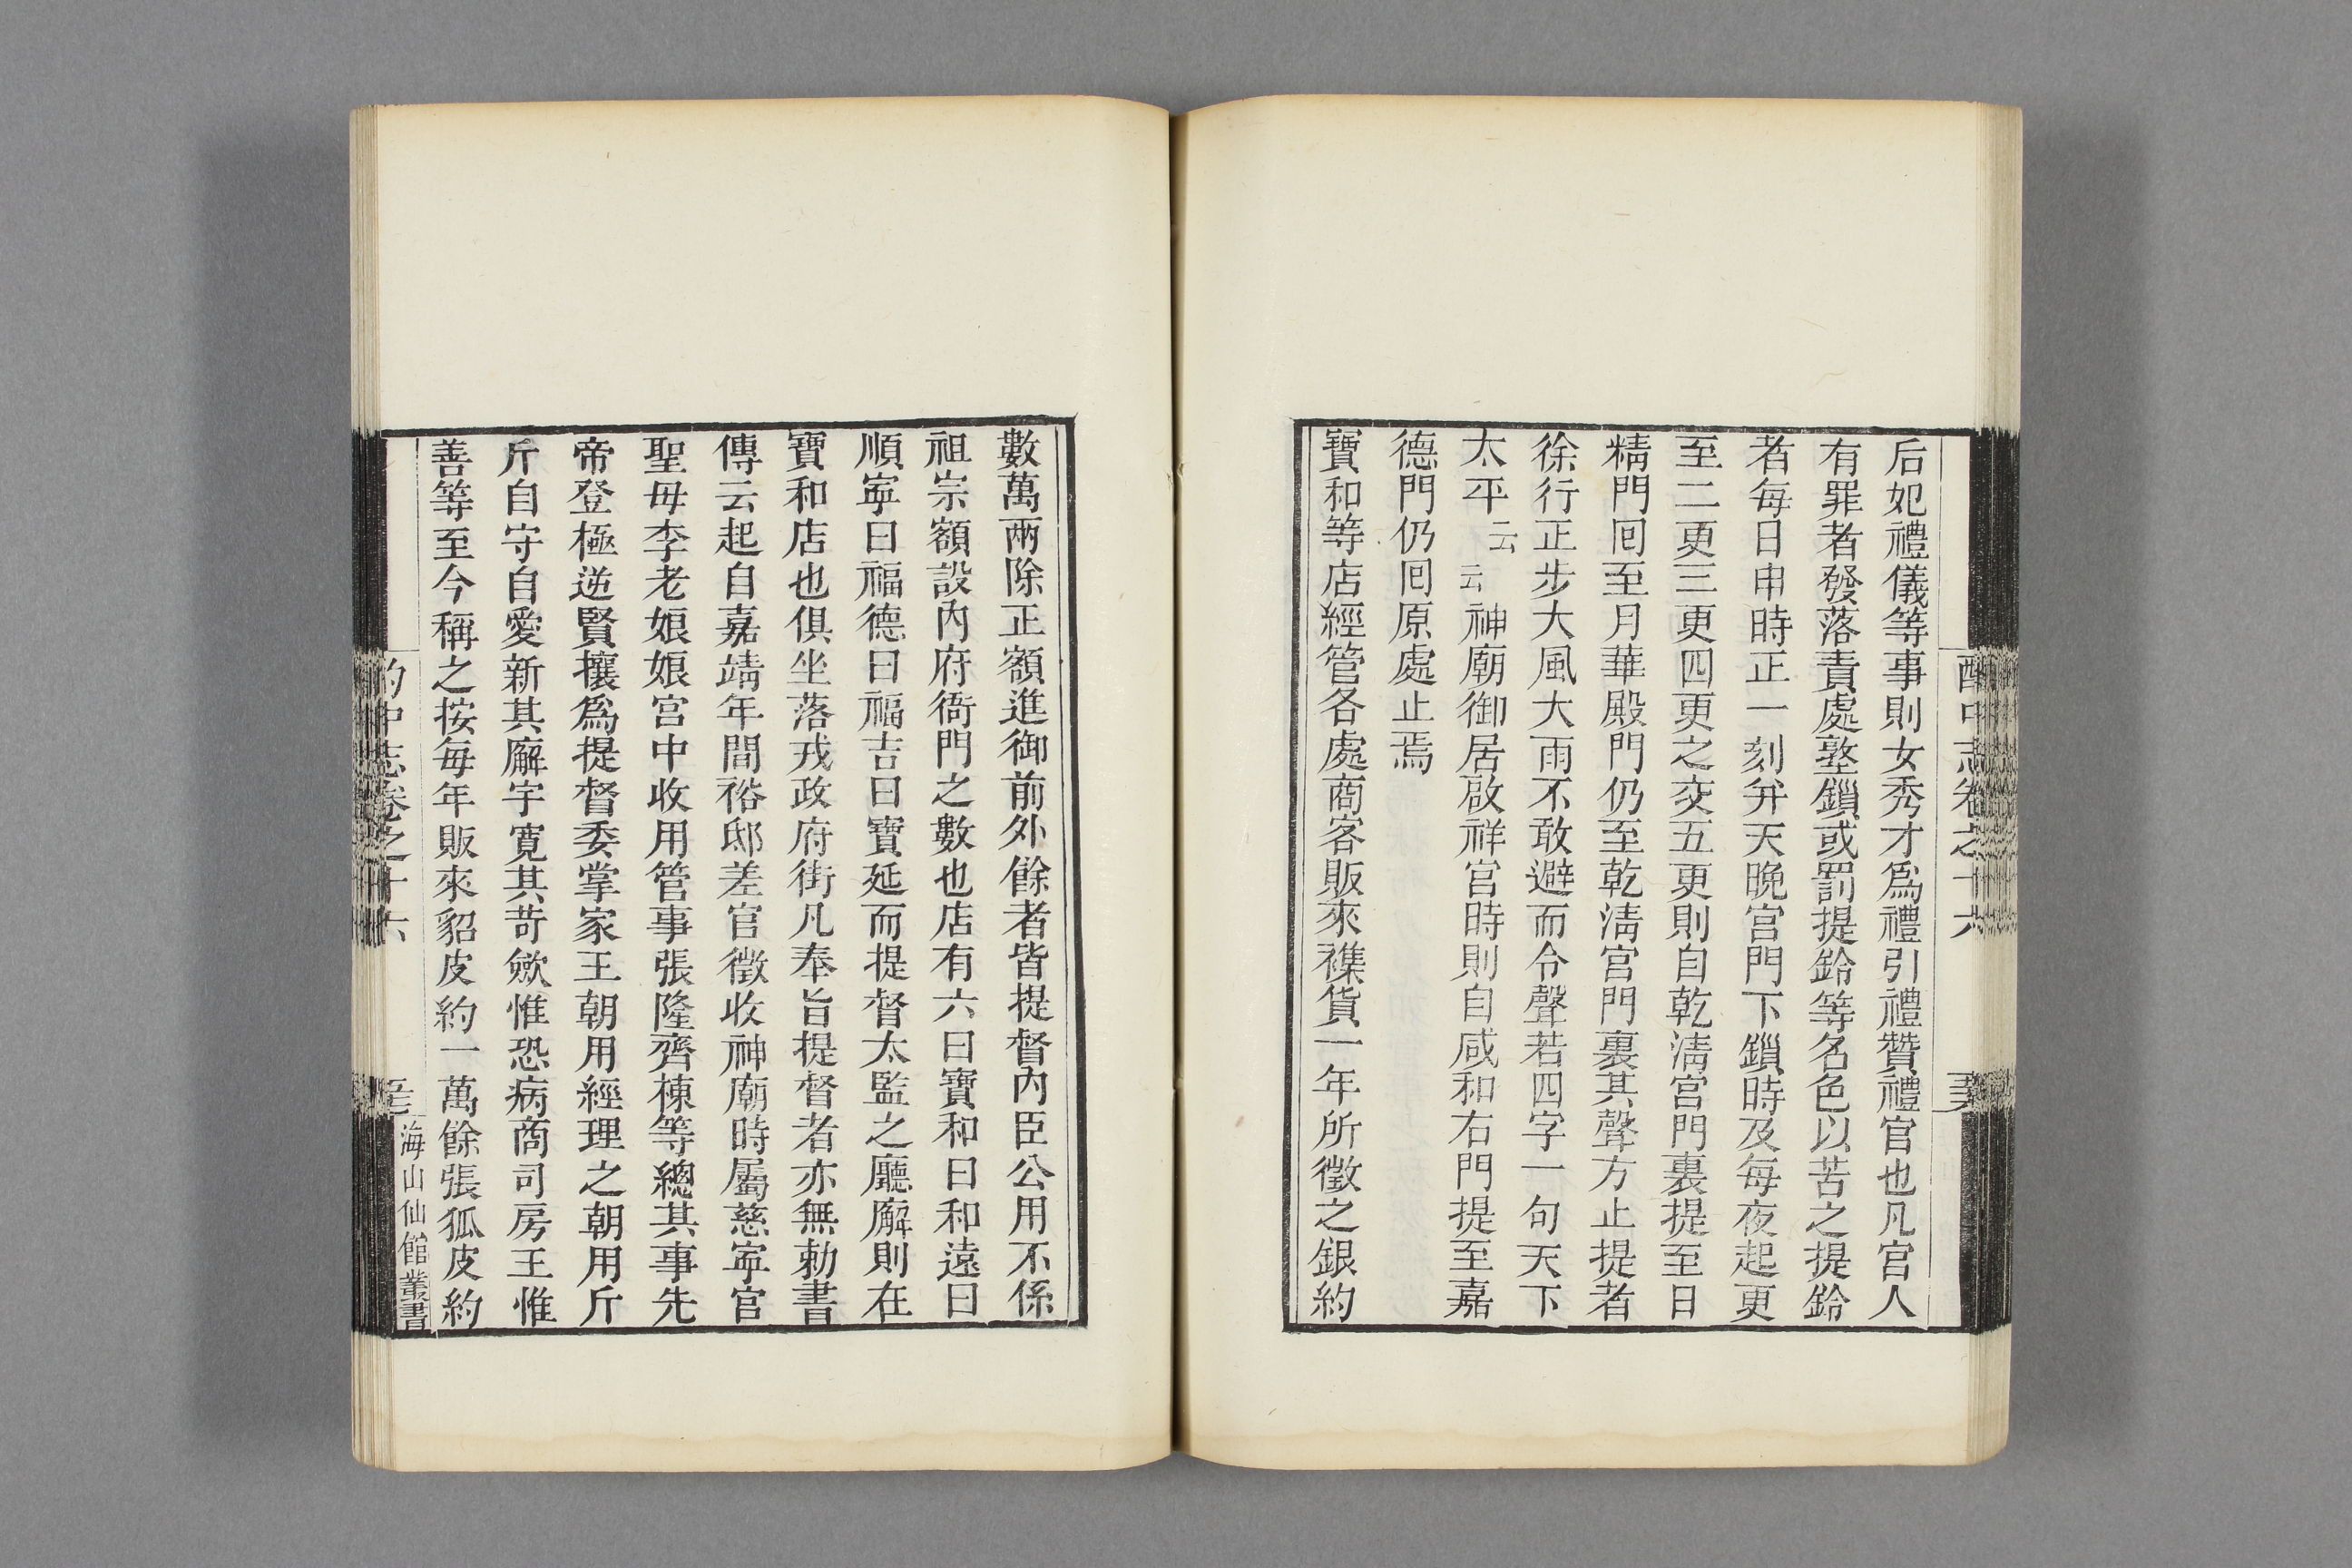 酌中志卷之十六
后妃禮儀等事則女秀才爲禮引禮贊禮官也凡宮人
有罪者發落責處墪鎖或罰提鈴等名色以苦之提鈴
者每日申時正一刻并天晚宮門下鎖時及每夜起更
至二更三更四更之交五更則自乾淸宮門裏提至日
精門囘至月華殿門仍至乾淸宮門裏其聲方止提者
徐行正步大風大雨不敢避而令聲若四字一句天下
太平云云神廟御居啟祥宮時則自咸和右門提至嘉
德門仍囘原處止焉
寶和等店經管各處商客販來襍貨一年所徵之銀約
數萬兩除正額進御前外餘者皆提督內臣公用不係
祖宗額設內府衙門之數也店有六曰寶和曰和遠曰
順寧曰福德曰福吉曰寶延而提督太監之廳廨則在
寶和店也俱坐落戎政府街凡奉旨提督者亦無勅書
傳云起自嘉靖年間裕邸差官徵收神廟時屬慈寧宮
聖母李老娘娘宮中收用管事張隆齊棟等總其事先
帝登極逆賢攘爲提督委掌家王朝用經理之朝用斤
斤自守自愛新其廨宇寬其苛歛惟恐病商司房王惟
善等至今稱之按每年販來貂皮約一萬餘張狐皮約
酌中志卷之十六
海山仙館叢書